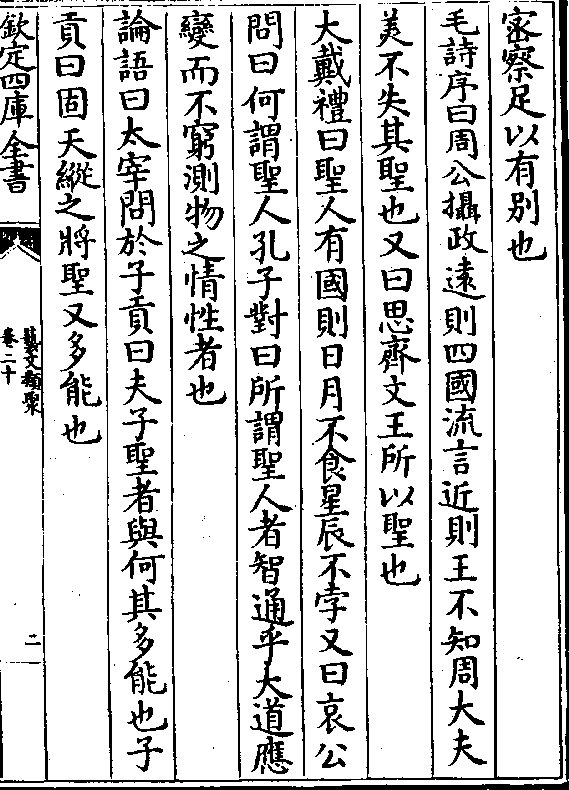 宻察足以有别也
毛詩序曰周公攝政逺則四國流言近則王不知周大夫
美不失其聖也又曰思齊文王所以聖也
大戴禮曰聖人有國則日月不食星辰不孛又曰哀公
問曰何謂聖人孔子對曰所謂聖人者智通乎大道應
變而不窮測物之情性者也
論語曰太宰問於子貢曰夫子聖者與何其多能也子
貢曰固天縱之將聖又多能也
欽定四庫全書
藝文類聚
卷二十
二